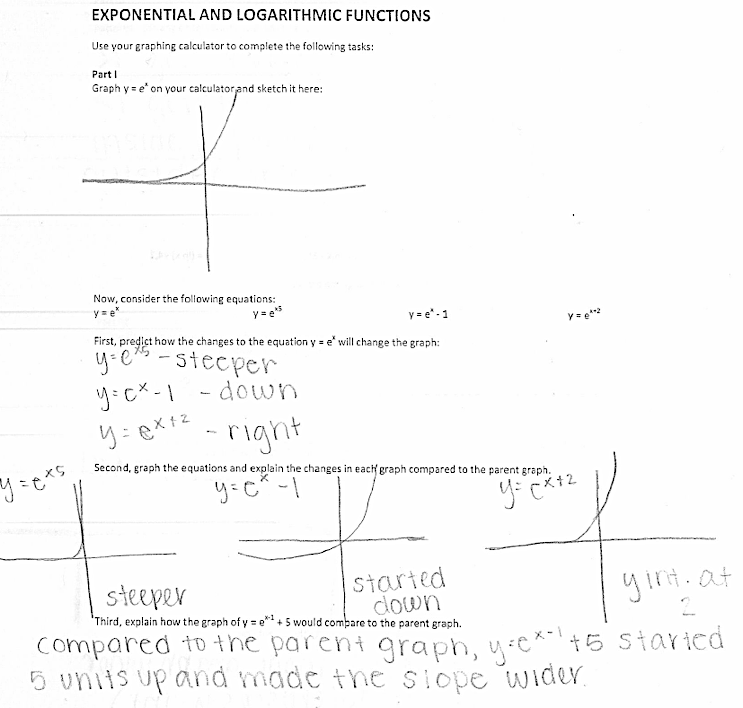 EXPONENTIAL AND LOGARITHMIC FUNCTIONS
Use your graphing calculator to complete the following tasks:
Part I
Graph y = eˣ on your calculator and sketch it here:
Now, consider the following equations:
y = eˣ y = eˣ⁵ y = eˣ - 1 y = eˣ⁺²
First, predict how the changes to the equation y = eˣ will change the graph:
y=eˣ⁵ - steeper
y=eˣ-1 - down
y=eˣ⁺² - right
Second, graph the equations and explain the changes in each graph compared to the parent graph.
y=eˣ⁵ y=eˣ-1 y=eˣ⁺²
steeper
started
down
y int. at
2
Third, explain how the graph of y = eˣ⁻¹ + 5 would compare to the parent graph.
compared to the parent graph, y=eˣ⁻¹+5 started
5 units up and made the slope wider.